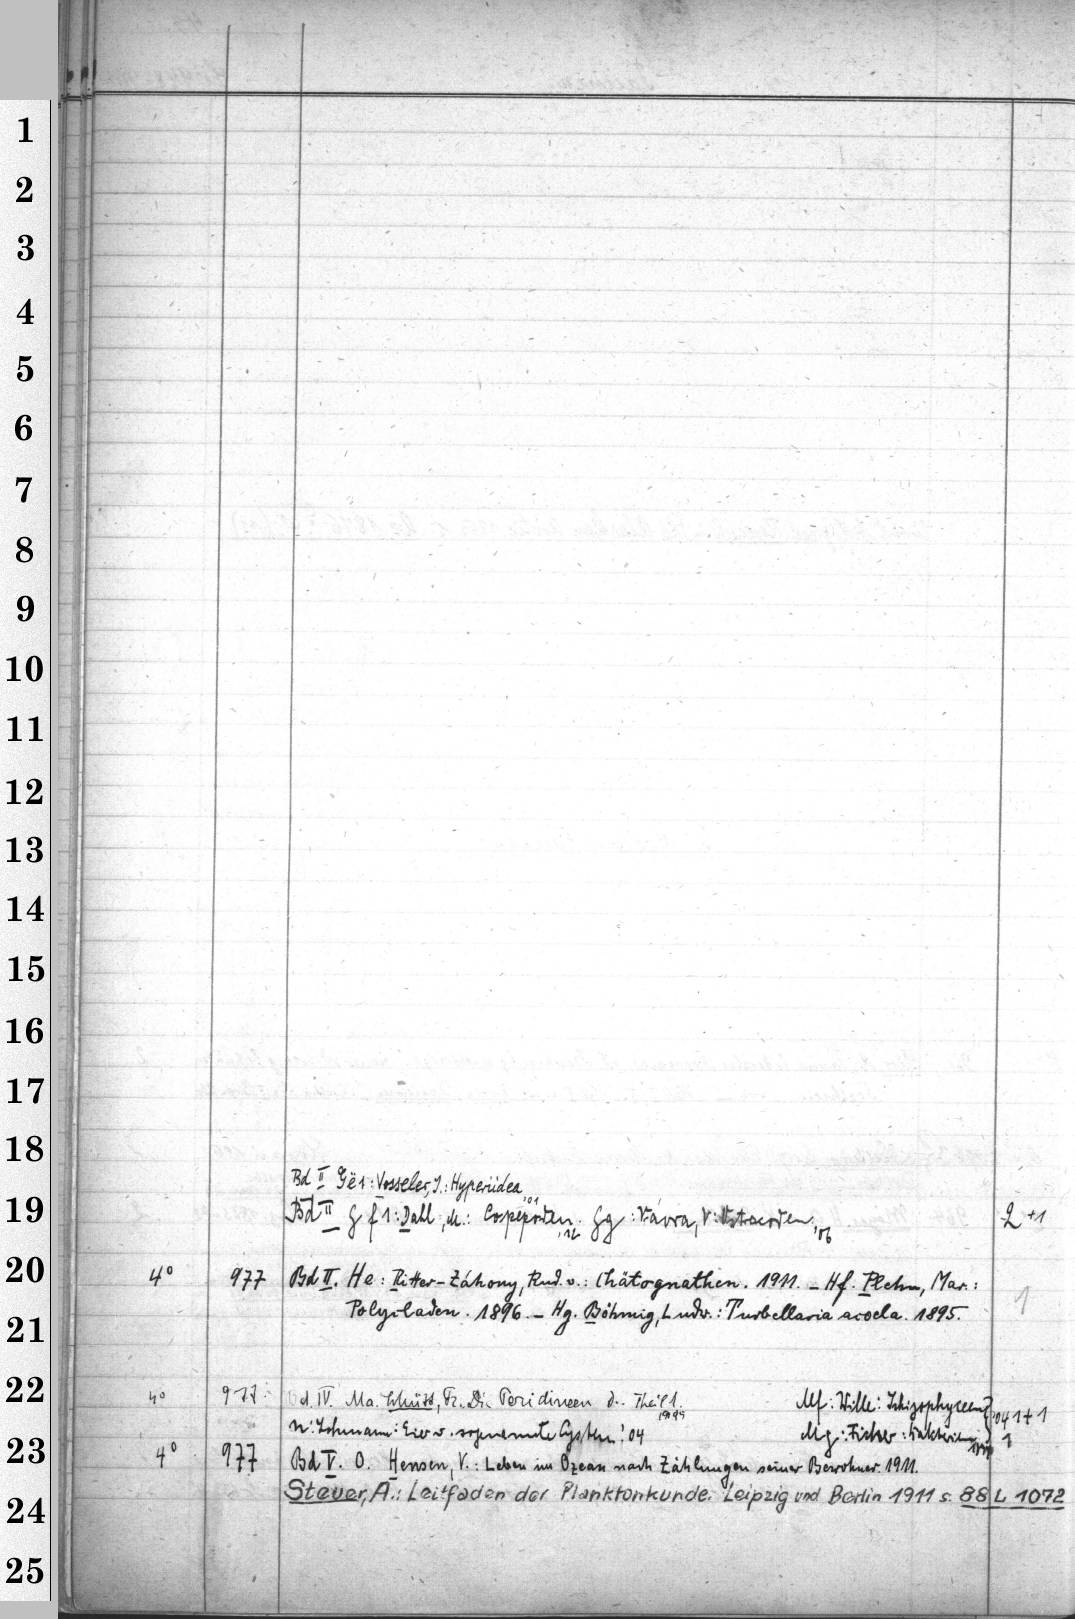 1
2
3
4
5
6
7
8
9
10
11
12
13
14
15
16
17
18
Bd II Gë1: Vosseler, J.: Hyperiidea '01
19 Bd II Gf1: Dahl, M.: Copepoden '12 Gg: Vávra, V: Ostracoden '06 2+1
20 4° 977 Bd II. He: Ritter-Záhony, Rud. v.: Chätognathen. 1911. – Hf: Plehn, Mar.: 1
21 Polycladen. 1896. – Hg. Böhmig, Ludw.: Turbellaria acoela. 1895.
22 4° 977 Bd. IV. Ma. Schütt, Fr. Die Peridineen d. Theil 1. Mf: Wille: Schizophyceen '04 1+1
N: Lohmann: Eier u. sogenannte Cysten '04 Mg: Fischer: Bakterien 1
23 4° 977 Bd V. O. Hensen, V.: Leben im Ozean nach Zählungen seiner Bewohner. 1911.
24 Steuer, A.: Leitfaden der Planktonkunde. Leipzig und Berlin 1911 s. 88 L 1072
25